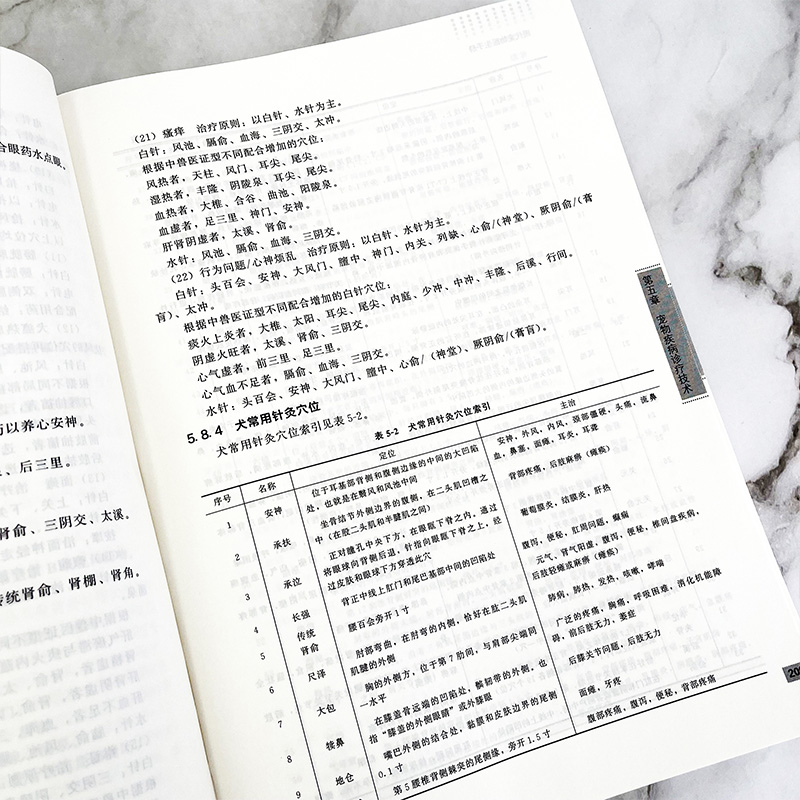 合眼药水点眼。
以养心安神。
、后三里。
肾俞、三阴交、太溪。
传统肾俞、肾棚、肾角。
(21) 瘙痒 治疗原则：以白针、水针为主。
白针：风池、膈俞、血海、三阴交、太冲。
根据中兽医证型不同配合增加的穴位；
风热者，天柱、风门、耳尖、尾尖。
湿热者，丰隆、阴陵泉、耳尖、尾尖。
血热者，大椎、合谷、曲池、阳陵泉。
血虚者，足三里、神门、安神。
肝肾阴虚者，太溪、肾俞。
水针：风池、膈俞、血海、三阴交。
(22) 行为问题/心神烦乱 治疗原则：以白针、水针为主。
白针：头百会、安神、大风门、膻中、神门、内关、列缺、心俞/(神堂)、厥阴俞/(膏
肓)、太冲。
根据中兽医证型不同配合增加的白针穴位；
痰火上炎者，大椎、太阳、耳尖、尾尖、内庭、少冲、中冲、丰隆、后溪、行间。
阴虚火旺者，太溪、肾俞、三阴交。
心气虚者，前三里、足三里。
心气血不足者，膈俞、血海、三阴交。
水针：头百会、安神、大风门、膻中、心俞/(神堂)、厥阴俞/(膏肓)。
5.8.4 犬常用针灸穴位
犬常用针灸穴位索引见表5-2。
表 5-2 犬常用针灸穴位索引
序号 名称 定位 主治
1 安神 位于耳基部背侧和腹侧边缘的中间的大凹陷 安神，外风，内风，颈部僵硬，头痛，流鼻
处，也就是在翳风和风池中间 血，鼻塞，面瘫，耳炎，耳聋
2 承扶 坐骨结节外侧边界的腹侧，在二头肌凹槽之 背部疼痛，后肢麻痹（瘫痪）
中（在股二头肌和半腱肌之间）
3 承泣 正对瞳孔中央下方，在眼眶下脊之内，通过 葡萄膜炎，结膜炎，肝热
将眼球向背侧后退，针指向眼眶下脊之上，经
过皮肤和眼球下方穿透此穴
4 长强 背正中线上肛门和尾巴基部中间的凹陷处 腹泻，便秘，肛周问题，癫痫
5 传统 腰百会旁开1寸 元气、肾气阳虚，腹泻，便秘，椎间盘疾病，
肾俞 后肢轻瘫或麻痹（瘫痪）
6 尺泽 肘部弯曲，在肘弯的内侧，恰好在肱二头肌 肺病，肺热，发热，咳嗽，哮喘
肌腱的外侧
7 大包 胸的外侧方，位于第7肋间，与肩部尖端同 广泛的疼痛，胸痛，呼吸困难，消化机能障
一水平 碍，前后肢无力，萎症
8 犊鼻 在膝盖骨远端的凹陷处，髌韧带的外侧，也 后膝关节问题，后肢无力
指“膝盖的外侧眼睛”或外膝眼
9 地仓 嘴巴外侧的结合处，黏膜和皮肤边界的尾侧 面瘫，牙疼
0.1寸
第5腰椎背侧棘突的尾侧缘，旁开1.5寸 腹部疼痛，腹泻，便秘，背部疼痛
第五章 宠物疾病诊疗技术